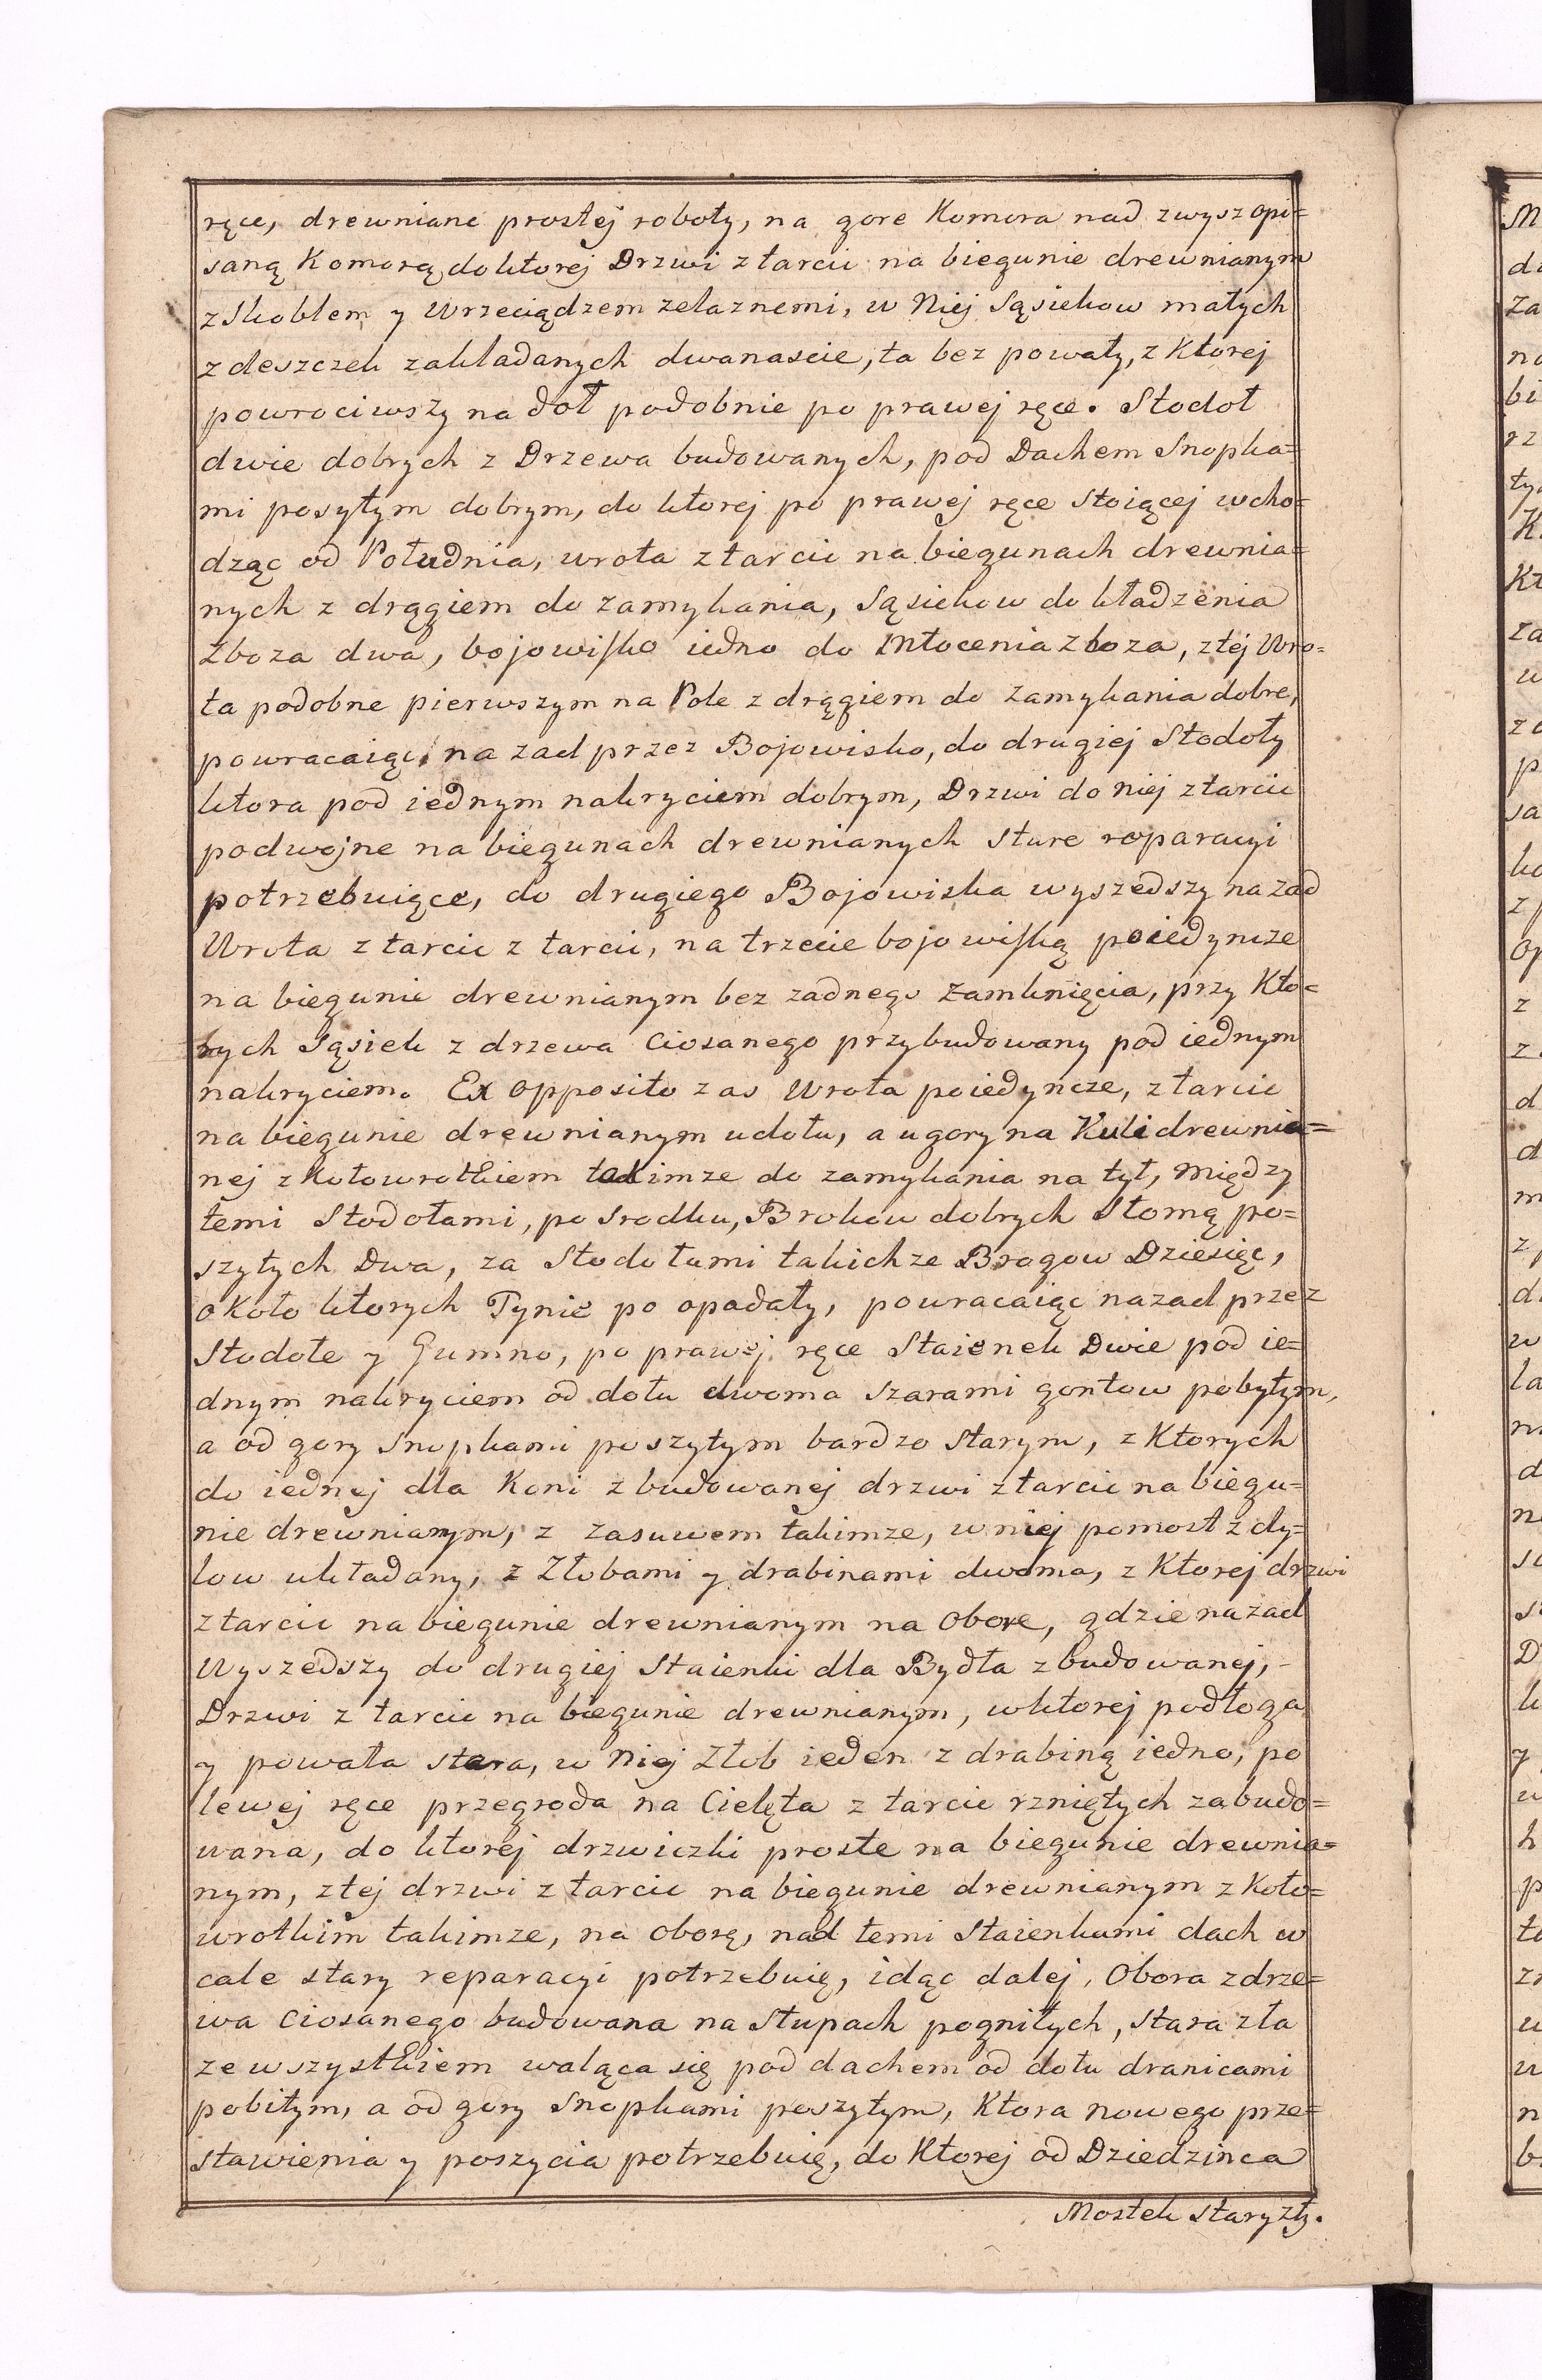 ręce, drewniane prostej roboty, na gore Komora nad zwysz opi=
saną Komorą do ktorej Drzwi z tarcic na biegunie drewnianym
z Skoblem y Wrzeciądzem zelaznemi, w Niej Sąsiekow małych
z deszczek zakładanych dwanascie, ta bez powały, z Ktorej
powrociwszy na doł podobnie po prawej ręce. Stodoł
dwie dobrych z Drzewa budowanych, pod Dachem Snopka=
mi posytym dobrym, do ktorej po prawej ręce stoiącej wcho=
dząc od Południa, wrota z tarcic na biegunach drewnia=
nych z drągiem do zamykania, Sąsiekow do kładzenia
Zboza dwa, bojowisko iedno do Młocenia zboza, z tej Wro=
ta podobne pierwszym na Pole z drągiem do zamykania dobre,
powracaiąc na zad przez Bojowisko, do drugiej Stodoły
ktora pod iednym nakryciem dobrym, Drzwi do niej z tarcic
podwojne na biegunach drewnianych stare reparacyi
potrzebuiące, do drugiego Bojowiska wyszedszy nazad
Wrota z tarcic z tarcic, na trzecie bojowiską poiedyncze
na biegunie drewnianym bez zadnego Zamknięcia, przy Kto=
rych Sąsiek z drzewa Ciosanego przybudowany pod iednym
nakryciem. Ex opposito zas Wrota poiedyncze, z tarcic
na biegunie drewnianym udołu, a ugory na Kuli drewnia=
nej z Kołowrotkiem takimze do zamykania na tył, między
temi Stodołami, po srodku, Brokow dobrych Słomą po=
szytych Dwa, za Stodołami takichze Brogow Dziesięc,
około ktorych Tynie po opadały, powracaiąc nazad przez
Stodołe y Gumno, po prawej ręce Staienek Dwie pod ie=
dnym nakryciem od dołu dwoma szarami gontow pobytym,
a od gory snopkami poszytym bardzo starym, z Ktorych
do iednej dla Koni zbudowanej drzwi z tarcic na biegu=
nie drewnianym, z zasuwem takimze, w niej pomost z dy=
low układany, z Złobami y drabinami dwoma, z Ktorej drzwi
z tarcic na biegunie drewnianym na Obore, gdzie nazad
Wyszedszy do drugiej Staienki dla Bydła zbudowanej,-
Drzwi z tarcic na biegunie drewnianym, wktorej podłoga
y powała stara, w Niej Złob ieden z drabiną iedno, po
lewej ręce przegroda na Cielęta z tarcic rzniętych zabudo=
wana, do ktorej drzwiczki proste na biegunie drewnia=
nym, z tej drzwi z tarcic na biegunie drewnianym z Koło=
wrotkim takimze, na Oborę, nad temi Staienkami dach w
cale stary reparacyi potrzebuię, idąc dalej, Obora z drze=
wa Ciosanego budowana na Słupach pogniłych, stara zła
ze wszystkiem waląca się pod dachem od dołu dranicami
pobitym, a od gory Snopkami poszytym, Ktora nowego prze=
stawienia y poszycia potrzebuię, do Ktorej od Dziedzinca
Mostek stary zły.